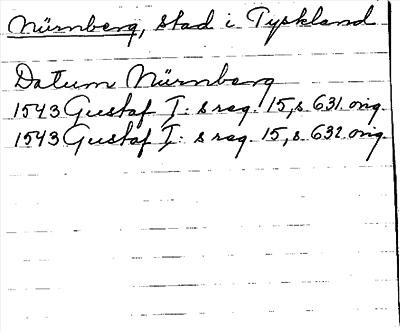 Nürnberg, stad i Tyskland
Datum Nürnberg
1543 Gustaf I: s reg. 15, s. 631. orig.
1543 Gustaf I: s reg. 15, s. 632 orig.